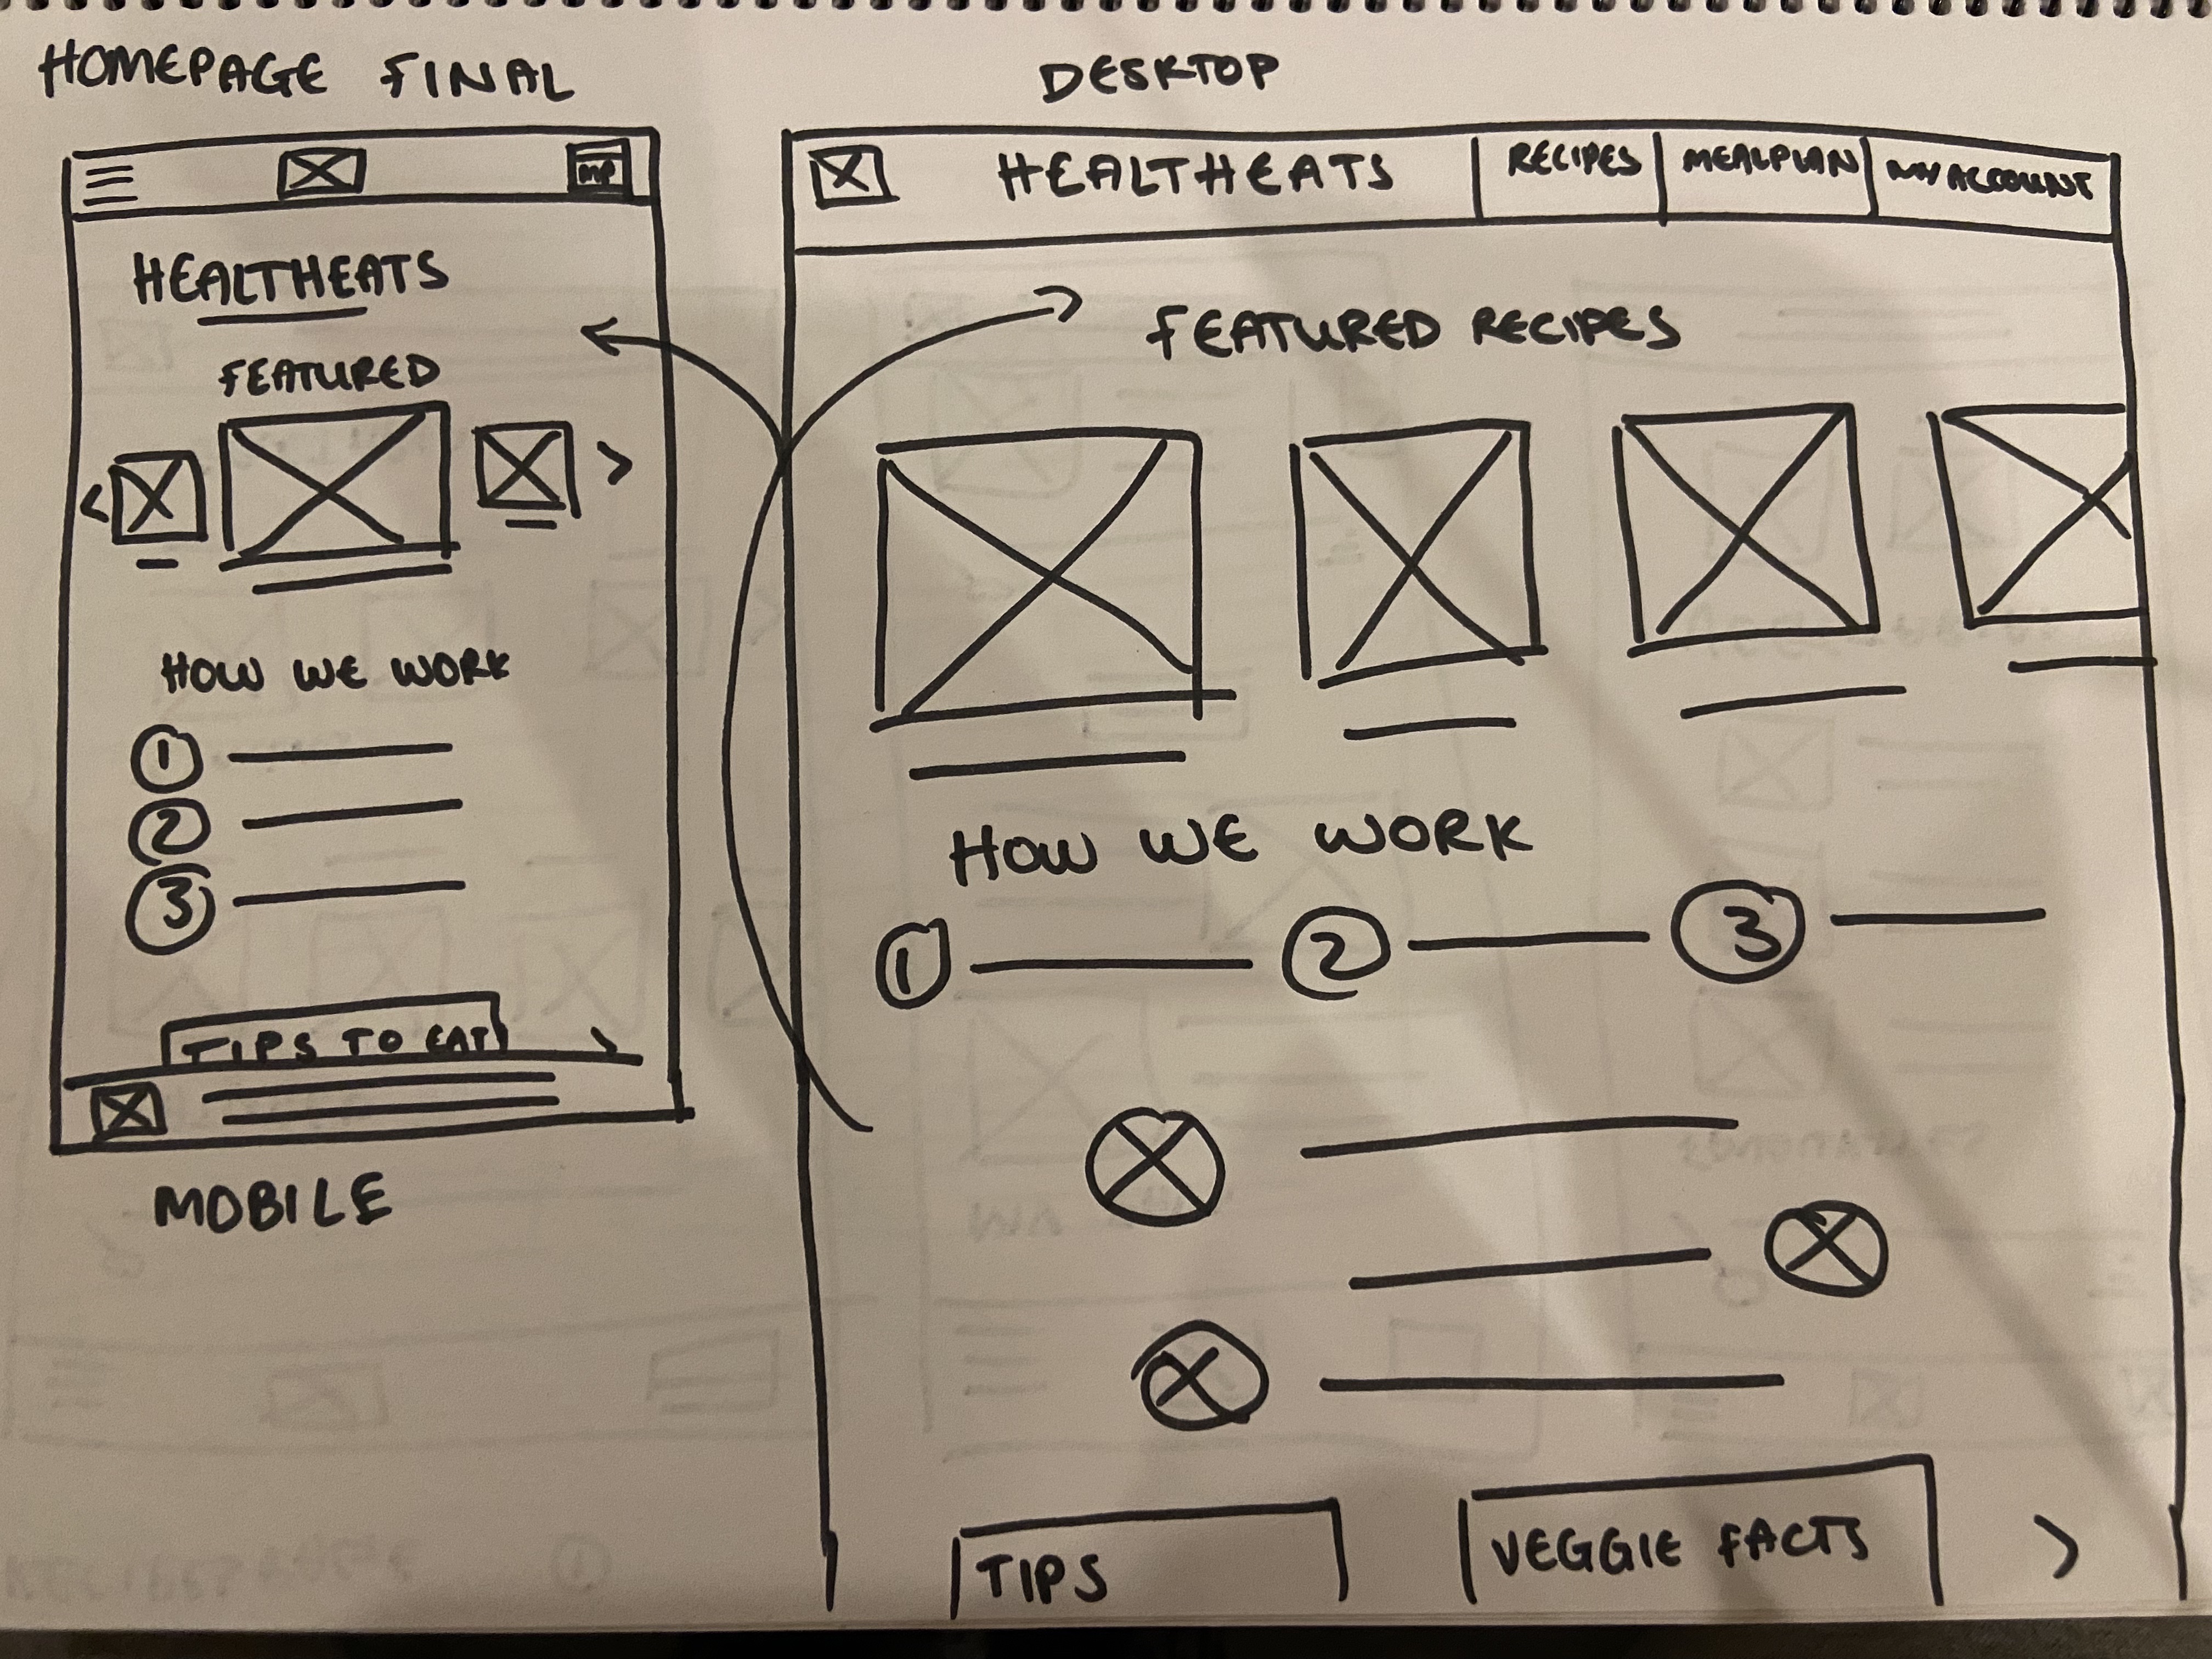 HOMEPAGE FINAL
MP
HEALTHEATS
FEATURED
<
>
HOW WE WORK
1
2
3
TIPS TO EAT
>
MOBILE
DESKTOP
HEALTHEATS
RECIPES
MEALPLAN
MY ACCOUNT
FEATURED RECIPES
HOW WE WORK
1
2
3
TIPS
VEGGIE FACTS
>